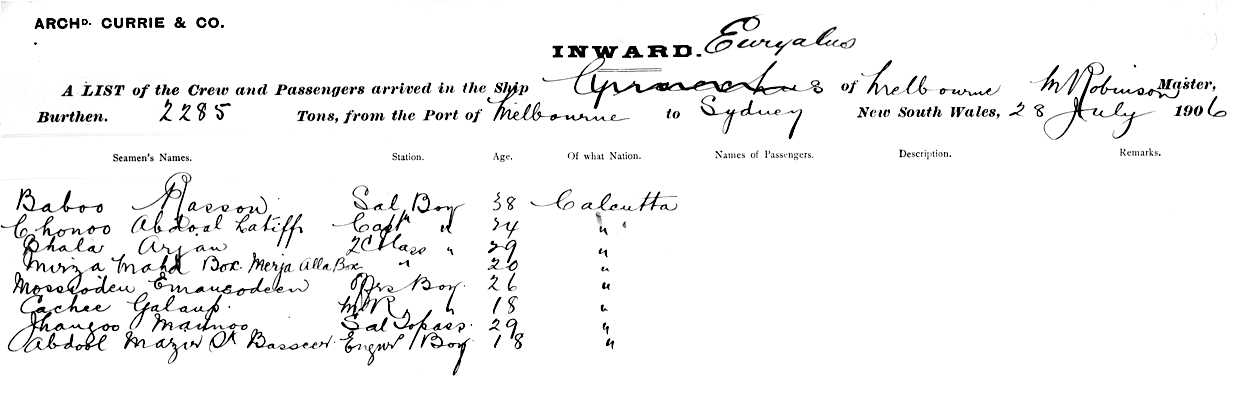 ARCHD. CURRIE & CO.
INWARD. Euryalus
A LIST of the Crew and Passengers arrived in the Ship of Melbourne M Robinson Master,
Burthen. 2285 Tons, from the Port of Melbourne to Sydney New South Wales, 28 July 1906
Seamen's Names. Station. Age. Of what Nation. Names of Passengers. Description. Remarks.
Baboo Rasson Sal Boy 38 Calcutta
Chonoo Abdoal Latiff Captn " 34 "
Bhala Arjan 2 Class " 29 "
Mirza Mahd Box Merja Alla Box " 20 "
Mossoden Emamsodeen Boy. 26 "
Cachee Galaup. M R " 18 "
Jhangoo Mannoo Sal Topass. 29 "
Abdool Mazir Basseer Engnr Boy 18 "